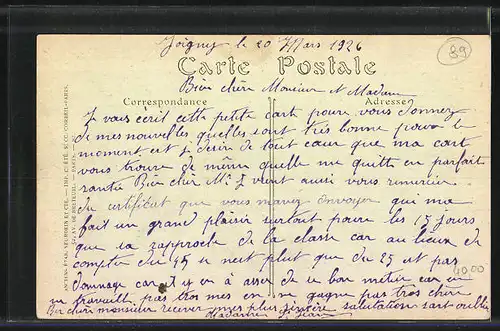 Joigny le 20 Mars 1926
89
Carte Postale
Bien cher Monsieur et Madame
Correspondance
Adresse
Je vais écrit cette petite carte pour vous donnez
de mes nouvelles quelles sont très bonne pour le
moment est je désire de tout cœur que ma cart
vous trouve de même quelle me quitte en parfait
santée Bien cher Mr. Je vient aussi vous remercier
du certificat que vous mavez envoyer qui ma
fait un grand plaisir surtout pour les 15 jours
que sa rapproche de la classe car au lieux de
compter du 45 se neit plut que du 25 et pas
dommage car il y en à assez de se bon métier car on
ne travaill pas tros mes on ne gagne pas tros chère
Bin cher monsieur recever mes plus sincère salutation sant oublier
Madame Jean
40.00
ANCIENS ÉTAB. NEURDEIN ET CIE. - IMP. CRÉTÉ, SUCC. CORBEIL-PARIS.